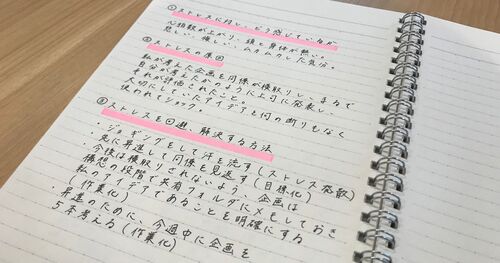 ①ストレスに対し、どう感じているか
心拍数が上がり、頭と身体が熱い。
悲しい、悔しい、ムカムカした気分。
②ストレスの原因
私が考えた企画を同僚が横取りし、まるで
自分が考えたかのように上司に発表し、
それが評価されたこと。
大切にしていたアイデアを何の断りもなく
使われてショック。
③ストレスを回避、解決する方法
・ジョギングをして汗を流す(ストレス発散)
・先に昇進して同僚を見返す(目標化)
・今後は横取りされないよう、企画は
構想の段階で共有フォルダにメモしておき
私のアイデアであることを明確にする
(作業化)
・昇進のために、今週中に企画を
5本考える(作業化)